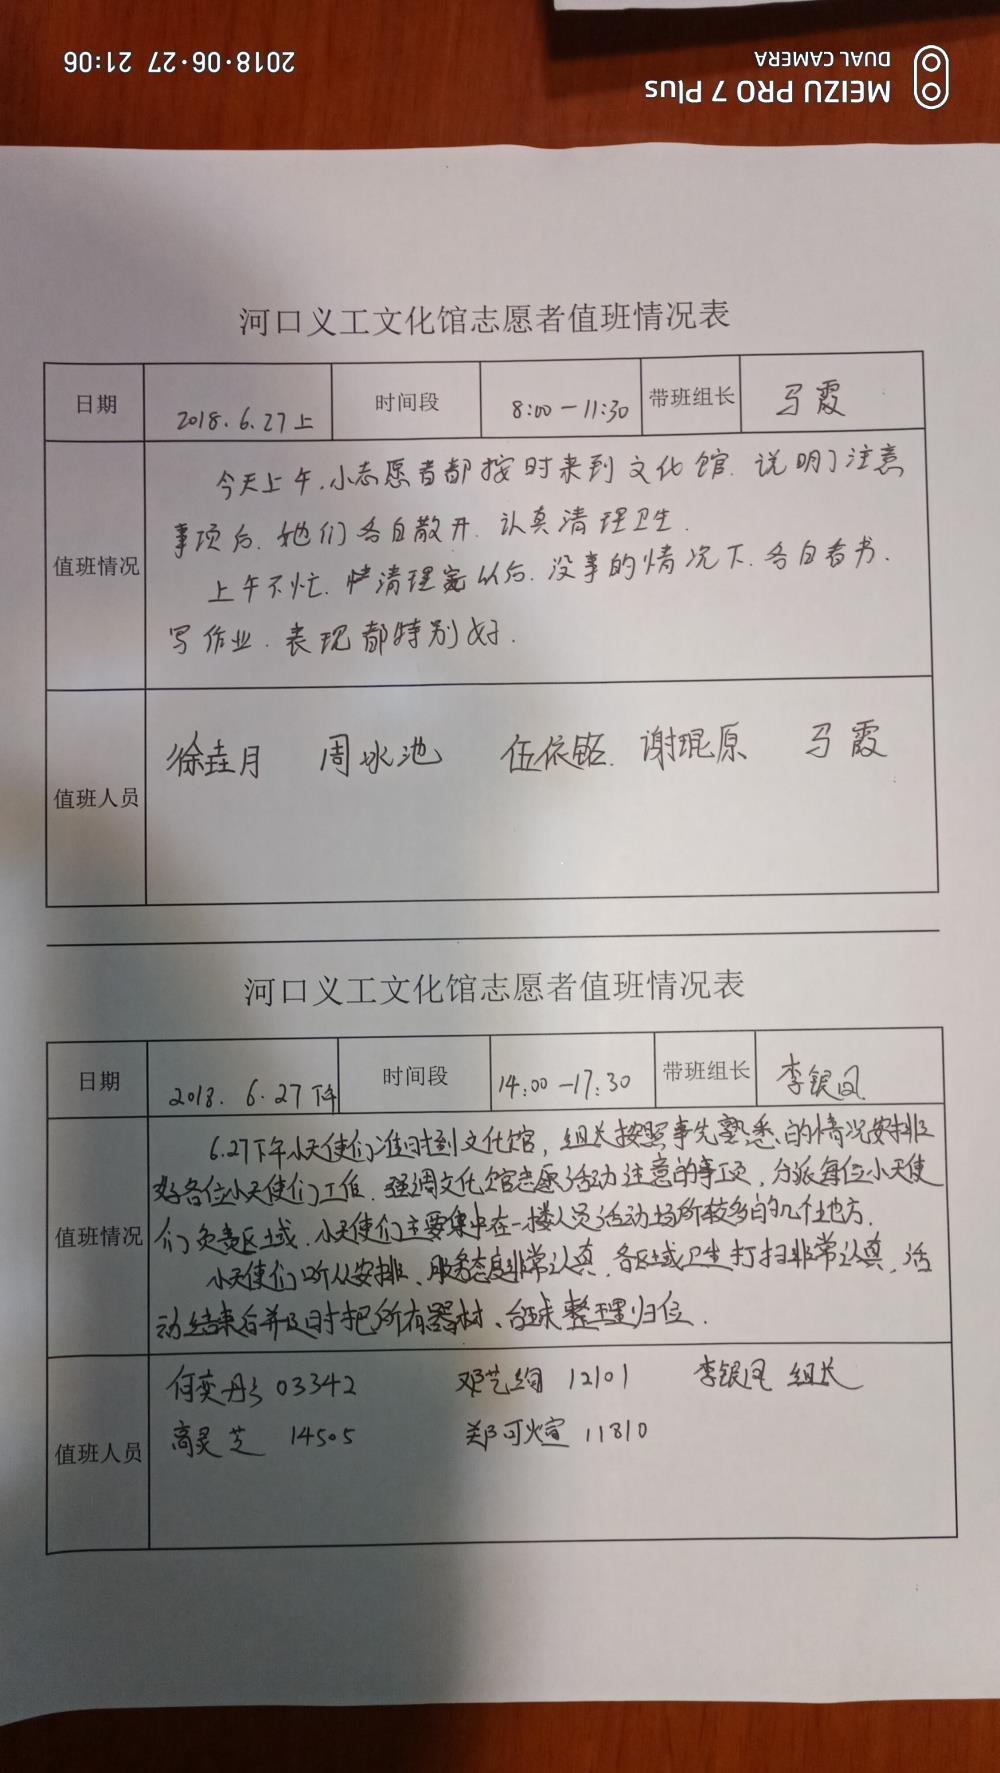 2018·06·27 21:06
MEIZU PRO 7 Plus
DUAL CAMERA
河口义工文化馆志愿者值班情况表
日期 2018.6.27上 时间段 8:00-11:30 带班组长 马霞
值班情况
今天上午,小志愿者都按时来到文化馆.说明了注意
事项后.她们各自散开.认真清理卫生.
上午不忙.清理完以后.没事的情况下.各自看书.
写作业.表现都特别好.
值班人员
徐垚月 周冰池 伍依铭. 谢琨原 马霞
河口义工文化馆志愿者值班情况表
日期 2018. 6.27下午 时间段 14:00-17:30 带班组长 李银凤
值班情况
6.27下午小天使们准时到文化馆,组长按照事先熟悉的情况安排
好各位小天使们工作.强调文化馆志愿活动注意的事项,分派每位小天使
们负责区域.小天使们主要集中在一楼人员活动场所较多的几个地方.
小天使们听从安排、服务态度非常认真.各区域卫生打扫非常认真,活
动结束后并及时把所有器材、台球整理归位.
值班人员
何奕彤 03342 邓艺绚 12101 李银凤 组长
高灵芝 14505 郑可煊 11810